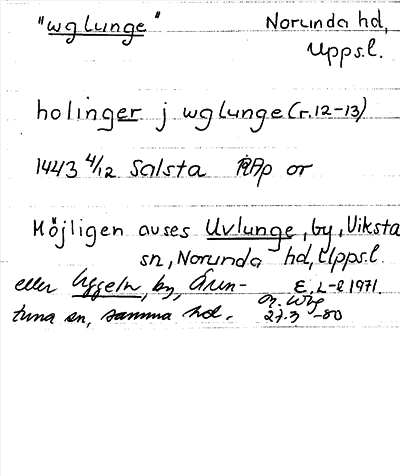 "wglunge" Norunda hd,
Upps.l.
holinger j wglunge (r. 12-13)
1443 4/12 Salsta RAp or
Möjligen avses Uvlunge, by, Viksta
sn, Norunda hd, Upps.l.
eller Uggeln, by, Ären- E. L-l 1971.
tuna sn, samma hd. 27.3 -80